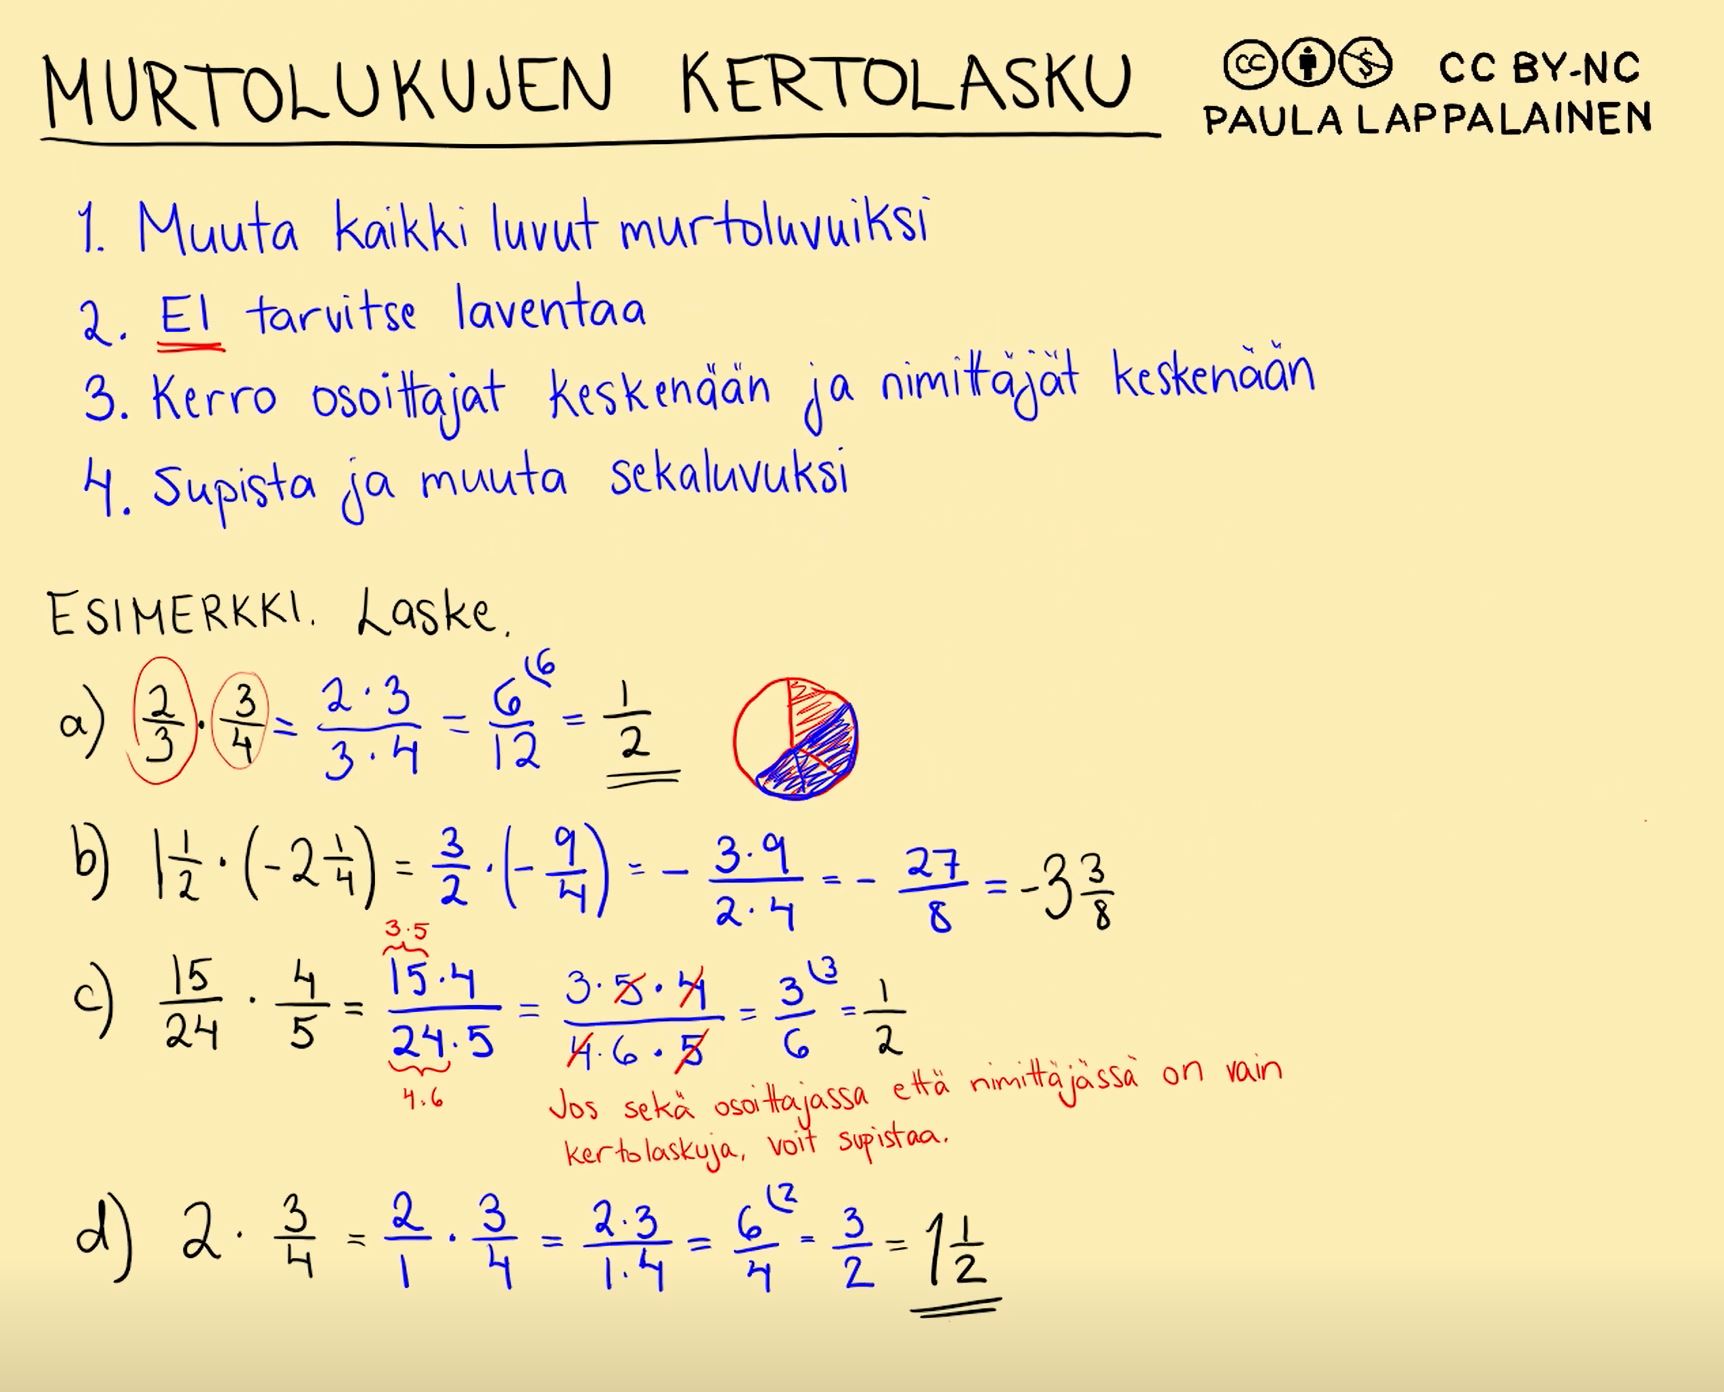 MURTOLUKUJEN KERTOLASKU
CC BY-NC
PAULA LAPPALAINEN
1. Muuta kaikki luvut murtoluvuiksi
2. EI tarvitse laventaa
3. Kerro osoittajat keskenään ja nimittäjät keskenään
4. Supista ja muuta sekaluvuksi
ESIMERKKI. Laske.
a) 2/3 · 3/4 = 2·3/3·4 = 6/12 (6 = 1/2
b) 1 1/2 · (-2 1/4) = 3/2 · (-9/4) = - 3·9/2·4 = - 27/8 = -3 3/8
3·5
c) 15/24 · 4/5 = 15·4/24·5 = 3·5·4/4·6·5 = 3/6 (3 = 1/2
4·6
Jos sekä osoittajassa että nimittäjässä on vain
kertolaskuja, voit supistaa.
d) 2 · 3/4 = 2/1 · 3/4 = 2·3/1·4 = 6/4 (2 = 3/2 = 1 1/2